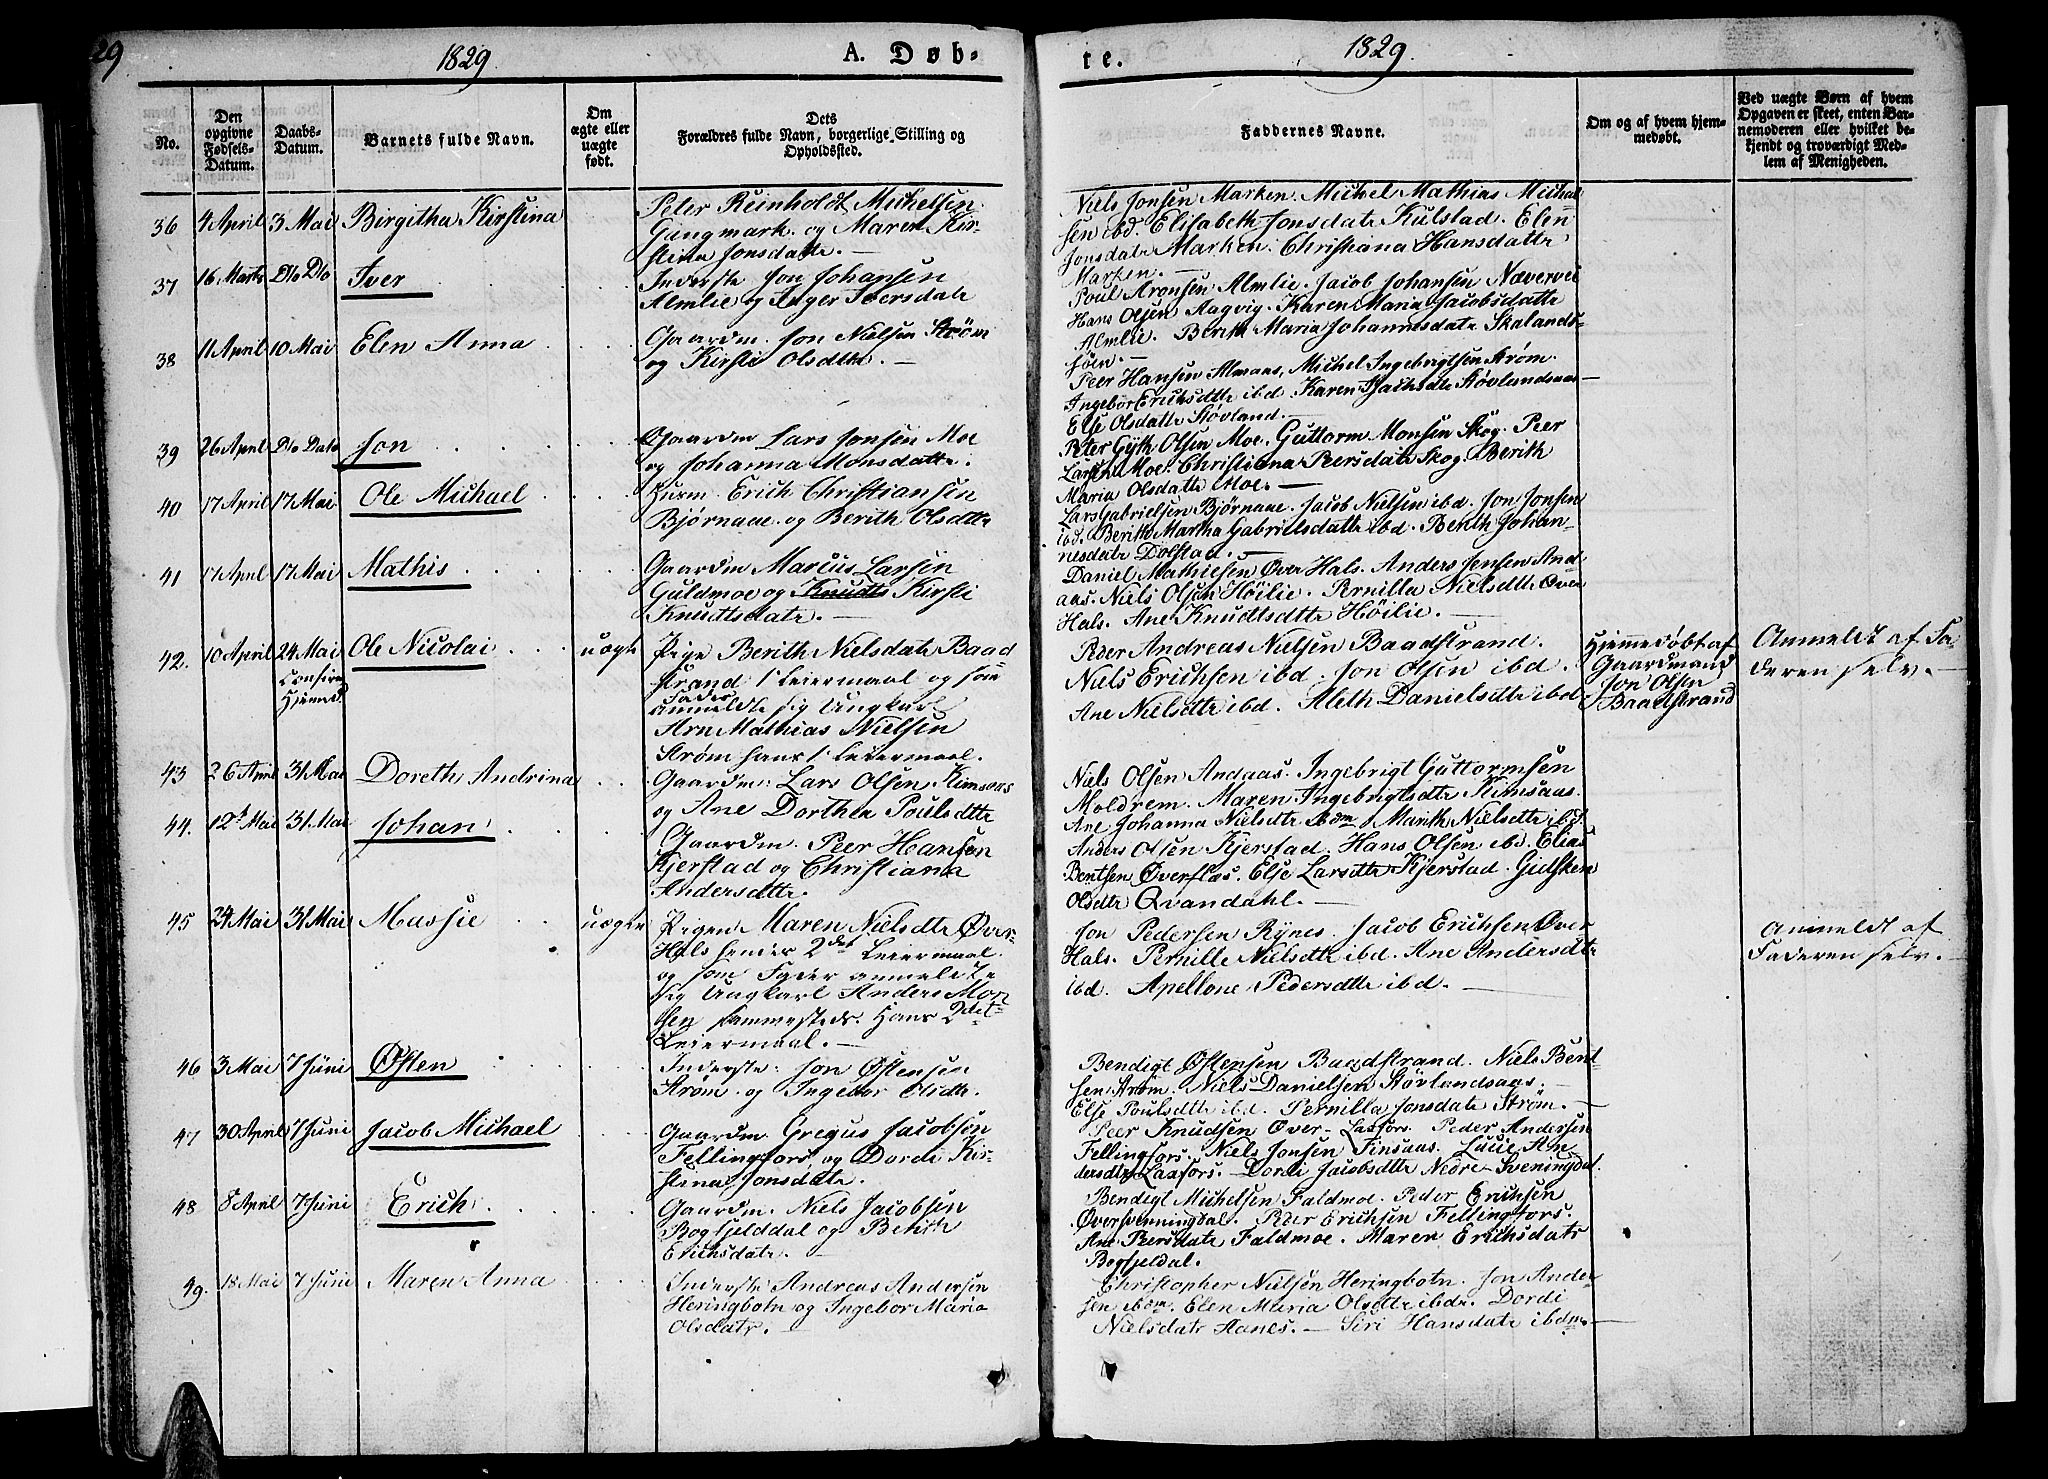 29
1829
A. Døb-
te.
1829
No.
Den opgivne Fødsels-Datum.
Daabs-Datum.
Barnets fulde Navn.
Om ægte eller uægte født.
Dets Forældres fulde Navn, borgerlige Stilling og Opholdssted.
Faddernes Navne.
Om og af hvem hjemmedøbt.
Ved uægte Børn af hvem Opgaven er skeet, enten Barnemoderen eller hvilket bekjendt og troværdigt Medlem af Menigheden.
36 4 April 3 Mai Birgitha Kirstina
Peter Reinholdt Michelsen
Gungmark og Maren Kir-
stina Jonsdatr.
Niels Jonsen Marken. Michel Mathias Michel
sen ibd. Elisabeth Jonsdatr Kulstad. Elen
Jonsdatr Marken. Christiana Hansdattr
Marken.
37 16 Marts Dto Dto Iver
Inderste Jon Johansen
Almlie og Inger Iversdatr
Poul Aronsen Almlie. Jacob Johansen Nævervei
Hans Olsen Aagvig. Karen Maria Jacobsdattr
Almlie. Berith Maria Johannisdatr Skalands-
38 11 April 10 Mai Elen Anna
Gaardm. Jon Nielsen Strøm
og Kirsti Olsdttr.
Peer Hansen Almaas, Michel Ingebrigtsen Strøm.
Ingebor Erichsdtr ibd. Karen Isachsdtr Støvlandsaas
Else Olsdattr Støvland.
39 26 April Dto Dato Jon
Gaardm Lars Jonsen Moe
og Johanna Monsdattr.
Peter Gyth Olsen Moe. Guttorm Monsen Skog. Peer
Larsen Moe. Christiana Peersdatr Skog. Berith
Maria Olsdattr Moe.
40 17 April 17 Mai Ole Michael
Huusm. Erich Christiansen
Bjørnaae og Berith Olsdttr
Lars Gabrielsen Bjørnaae. Jacob Nielsen ibd. Jon Jonsen
ibd. Berith Martha Gabrielsdattr ibd. Berith Johan-
nesdatr Dolstad.
41 17 April 17 Mai Mathis
Gaardm Marcus Larsen
Guldmoe og Knudts Kirsti
Knudtsdatr.
Daniel Mathiesen Øver Hals. Anders Jensen And
aas. Niels Olsen Høilie. Pernilla Nielsdttr Øver
Hals. Ane Knudtsdttr Høilie.
42. 10 April 24 Mai Ole Nicolai uægte
Hjemmed
Pige Berith Nielsdatr Baad
strand 1' Leiermaal og som
Fader
anmeldte sig Ungkarl
Arn Mathias Nielsen
Strøm hans 1' Leiermaal.
Peder Andreas Nielsen Baadstrand.
Niels Erichsen ibd. Jon Olsen ibd.
Ane Nielsdtr ibd. Aleth Danielsdtr ibd
Hjemmedøbt af
Gaardmand
Jon Olsen
Baadstrand
Anmeldt af Fa-
deren selv.
43 26 April 31 Mai Doreth Andrina
Gaardm: Lars Olsen Kimsaas
og Ane Dorthea Poulsdttr
Niels Olsen Andaas. Ingebrigt Guttormsen
Moldrem. Maren Ingebrigtsdtr Kimsaas.
Ane Johanna Nielsdtr ibdm Marith Nielsdtr ibd.
44. 12te Mai 31 Mai Johan
Gaardm. Peer Hansen
Kjerstad og Christiana
Andersdttr.
Anders Olsen Kjerstad. Hans Olsen ibd. Elias
Bentsen Øverslas. Else Larsdttr Kjerstad. Gidsken
Olsdtr Qvandahl.
45 24 Mai 31 Mai Massie uægte
Pigen Maren Nielsdtr Øver-
Hals hendes 2det Leiermaal
og som Fader anmeldte
sig Ungkarl Anders Mor
ten sammesteds. Hans 2det
Leiermaal.
Jon Pedersen Rynes. Jacob Erichsen Øver
Hals. Pernille Nielsdtr ibd. Ane Andersdtr
ibd. Apellone Pedersdtr ibd.
Anmeldt af
Faderen selv.
46 3 Mai 7 Juni Østen
Inderste: Jon Østensen
Strøm og Ingebor Olsdtr.
Bendigt Østensen Baadstrand. Niels Bent
sen Strøm. Niels Danielsen Støvlandsaas.
Else Poulsdtr ibd. Pernilla Jonsdatr Strøm.
47 30 April 7 Juni Jacob Michael
Gaardm. Gregus Jacobsøn
Fellingfors og Dordi Kir-
stina Jonsdatr.
Peer Knudsen Over-Laxfors. Peder Andersen
Fellingfors. Niels Jonsen Finsaas. Lucie An-
dersdtr Laxfors. Dordi Jacobsdtr Nedre-Sveningdal.
48 8 April 7 Juni Erich
Gaardm. Niels Jacobsen
Bogfjelddal og Berith
Erichsdatr.
Bendigt Michelsen Faldmoe. Peder Erichsen
Øversvenningdal. Peder Erichsen Fellingfors.
Ane Peersdatr Faldmoe. Maren Erichsdatr
Bogfjeldal.
49. 18 Mai 7 Juni Maren Anna
Inderste Andreas Andersen
Heringbotn og Ingebor Maria
Olsdatr.
Christopher Nielsen Heringbotn. Jon Ander-
sen ibdm. Elen Maria Olsdtr ibdr. Dordi
Nielsdatr Aanes. Siri Hansdatr ibdm.